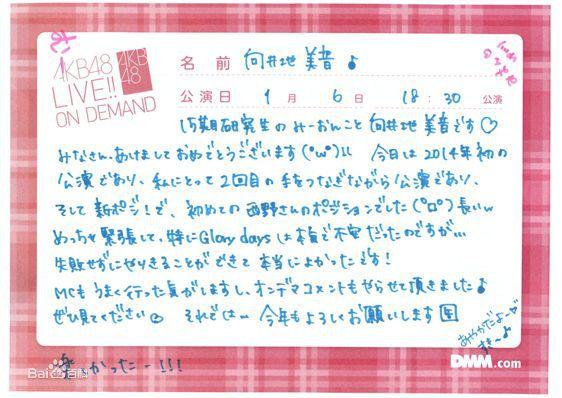 AKB48
LIVE!!
ON DEMAND
AKB
48
名前 向井地 美音♪
公演日 1月 6日 18:30 公演
15期研究生のみーおんこと 向井地 美音です♡
みなさん、あけましておめでとうございます(°ω°)!! 今日は2014年初の
公演であり、私にとって2回目の手をつなぎながら公演であり、
そして新ポジ!で、初めての西野さんのポジションでした(°ロ°)長いw
めっちゃ緊張して、特にGlory daysは本気で不安だったのですが…
失敗せずにやりきることができて本当によかったです!
MCもうまく行った気がしますし、オンデマコメントもやらせて頂きました♪
ぜひ見てください それでは… 今年もよろしくお願いします
あやかだよーん
すきー♪
楽しかったー!!!
Bai百科
DMM.com